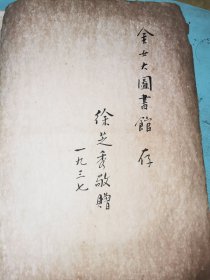 金女大圖書館 存
徐芝秀敬贈
一九三七